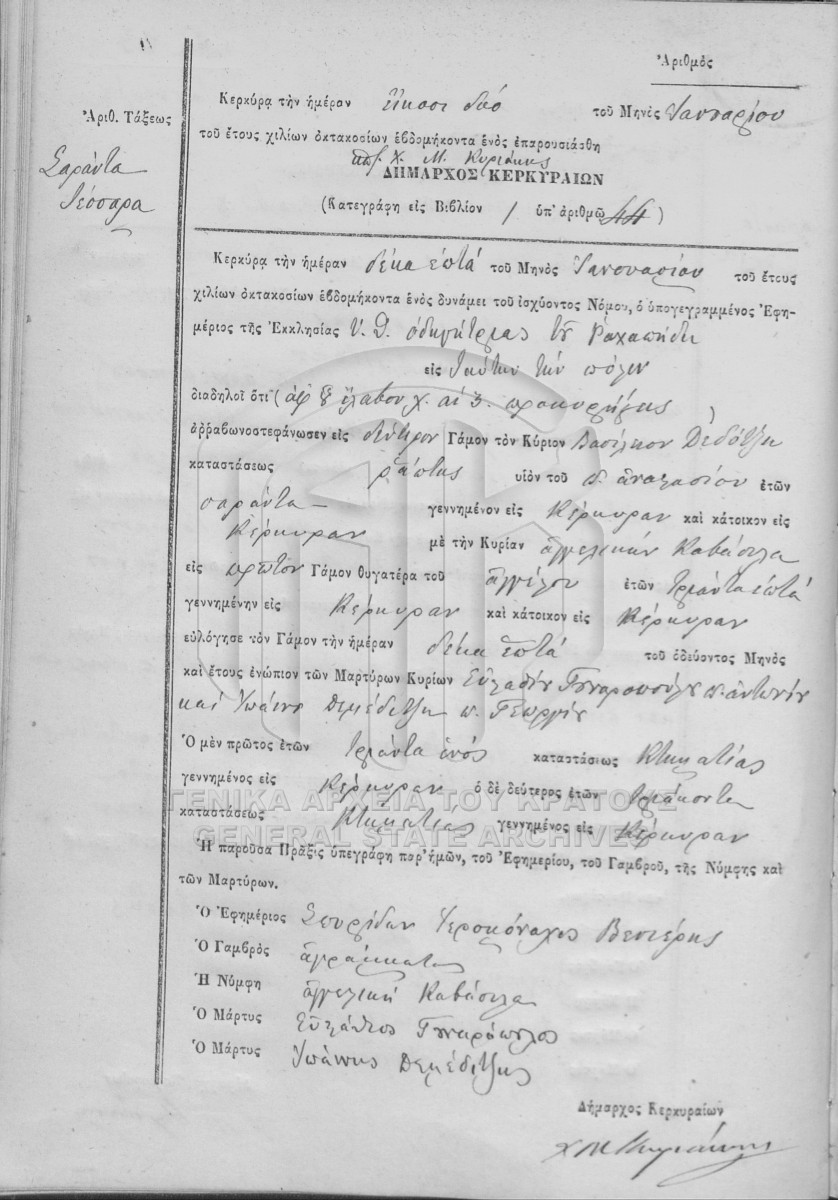 Ἀριθμὸς
Ἀριθ. Τάξεως
Σαράντα
τέσσαρα
Κερκύρᾳ τὴν ἡμέραν εἴκοσι δύο τοῦ Μηνὸς Ἰανουαρίου
τοῦ ἔτους χιλίων ὀκτακοσίων ἑβδομήκοντα ἑνὸς ἐπαρουσιάσθη
Χ. Μ. Κυριάκης
ΔΗΜΑΡΧΟΣ ΚΕΡΚΥΡΑΙΩΝ
(Κατεγράφη εἰς Βιβλίον 1 ὑπ' ἀριθμῷ 44)
Κερκύρᾳ τὴν ἡμέραν δέκα ἑπτά τοῦ Μηνὸς Ἰανουαρίου τοῦ ἔτους
χιλίων ὀκτακοσίων ἑβδομήκοντα ἑνὸς δυνάμει τοῦ ἰσχύοντος Νόμου, ὁ ὑπογεγραμμένος Ἐφη-
μέριος τῆς Ἐκκλησίας Υ. Θ. ὁδηγήτριας
εἰς ταύτην τὴν πόλιν
διαδηλοῖ ὅτι (ἀφ' οὗ ἔλαβον χ. αἱ 3. προκυρήξεις)
ἀῤῥαβωνοστεφάνωσεν εἰς δεύτερον Γάμον τὸν Κύριον Βασίλειον Δεδότζη
καταστάσεως ῥάπτης υἱὸν τοῦ π. ἀναστασίου ἐτῶν
σαράντα γεννημένον εἰς Κέρκυραν καὶ κάτοικον εἰς
Κέρκυραν μὲ τὴν Κυρίαν ἀγγελικὴν Καβάσιλα
εἰς πρῶτον Γάμον θυγατέρα τοῦ ἀγγέλου ἐτῶν τριάντα ἑπτά
γεννημένην εἰς Κέρκυραν καὶ κάτοικον εἰς Κέρκυραν
εὐλόγησε τὸν Γάμον τὴν ἡμέραν δέκα ἑπτά τοῦ ὁδεύοντος Μηνὸς
καὶ ἔτους ἐνώπιον τῶν Μαρτύρων Κυρίων Εὐστάθιον Γυναροπούλου π. ἀντωνίου
καὶ Ἰωάννη Δεμέδιτζη π. Γεωργίου
Ὁ μὲν πρῶτος ἐτῶν τριάντα ἑνός καταστάσεως Κτηματίας
γεννημένος εἰς Κέρκυραν ὁ δὲ δεύτερος ἐτῶν τριάκοντα
ΓΕΝΙΚΑ ΑΡΧΕΙΑ ΤΟΥ ΚΡΑΤΟΥΣ
καταστάσεως Κτηματίας γεννημένος εἰς Κέρκυραν
GENERAL STATE ARCHIVES
Ἡ παροῦσα Πρᾶξις ὑπεγράφη παρ' ἡμῶν, τοῦ Ἐφημερίου, τοῦ Γαμβροῦ, τῆς Νύμφης καὶ
τῶν Μαρτύρων.
Ὁ Ἐφημέριος Σπυρίδων Ἱερομόναχος Βεντέρης
Ὁ Γαμβρὸς ἀγράμματος
Ἡ Νύμφη ἀγγελική Καβάσιλα
Ὁ Μάρτυς Εὐστάθιος Γυναρόπουλος
Ὁ Μάρτυς Ἰωάννης Δεμέδιτζης
Δήμαρχος Κερκυραίων
Χ Μ Κυριάκης